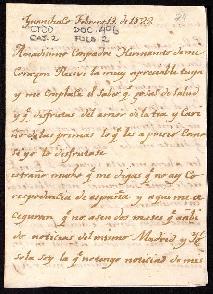 Febrero 13. de 1822
CTDO DOC. 406
CAJ. 2 FOLD. 2
Amadisimo Compadre Hermanito de mi
Corazon Recivi la muy apreciable tuya
y me Complace el Saber q.e gozas de Salud
y q.e disfrutas del amor de la tia y Cari
ño de las primas lo q.e
yo lo disfrutaré
estraño mucho q.e me digas q.e no ay Co
respondencia de españa y aqui me a
seguran q.e no asen dos meses q.e
de noticias del mismo Madrid y
Sola Soy la q.e no tengo noticias de mis